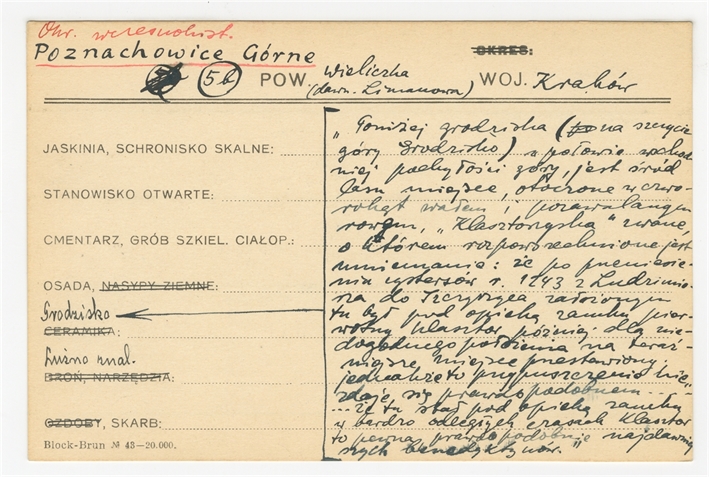 Okr. wczesnohist.
Poznachowice Górne
OKRES:
5b POW. Wieliczka
(dawn. Limanowa)
WOJ. Kraków
JASKINIA, SCHRONISKO SKALNE:
STANOWISKO OTWARTE:
CMENTARZ, GRÓB SZKIEL. CIAŁOP.:
OSADA, NASYPY ZIEMNE:
Grodzisko
CERAMIKA:
Luźno znal.
BROŃ, NARZĘDZIA:
OZDOBY, SKARB:
Block-Brun № 43—20.000.
„Poniżej grodziska (na szczycie
góry Grodzisko) w połowie wschod
niej pochyłości góry, jest śród
lasu miejsce, otoczone w czwo-
robok wałem i pozawalanym
rowem, „Klasztorzyską" zwane,
o którem rozpowszechnione jest
mniemanie: że po przeniesie-
niu cystersów r. 1243 z Ludzimie-
rza do Szczyrzyca założonym
tu był pod opieką zamku pier-
wotny klasztor później dla nie-
dogodnego położenia na teraź-
miejsze miejsce przestawiony,
jednakże to przypuszczenie nie
zdaje się prawdopodobnem...
...że tu stał pod opieką zamku
w bardzo odległych czasach klasztor
to pewna, prawdopodobnie najdawniej
szych benedyktynów."